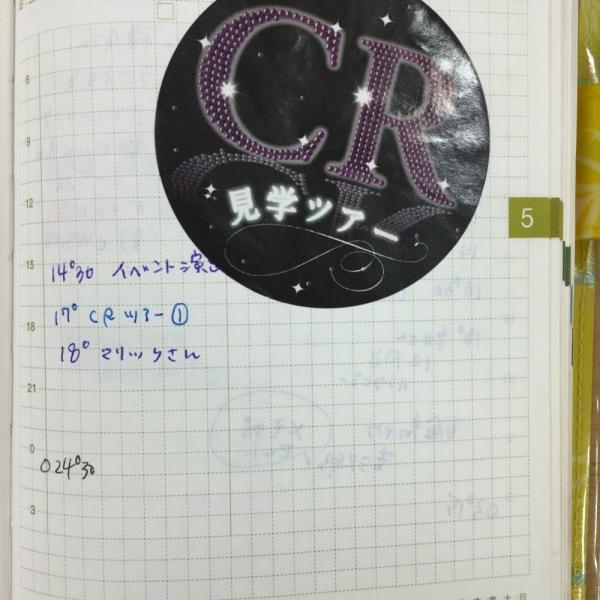 CR
見学ツアー
6
9
12
5
15
14°30 イベント演
17° CRツアー①
18
18° マリックさん
21
0
024°30
3